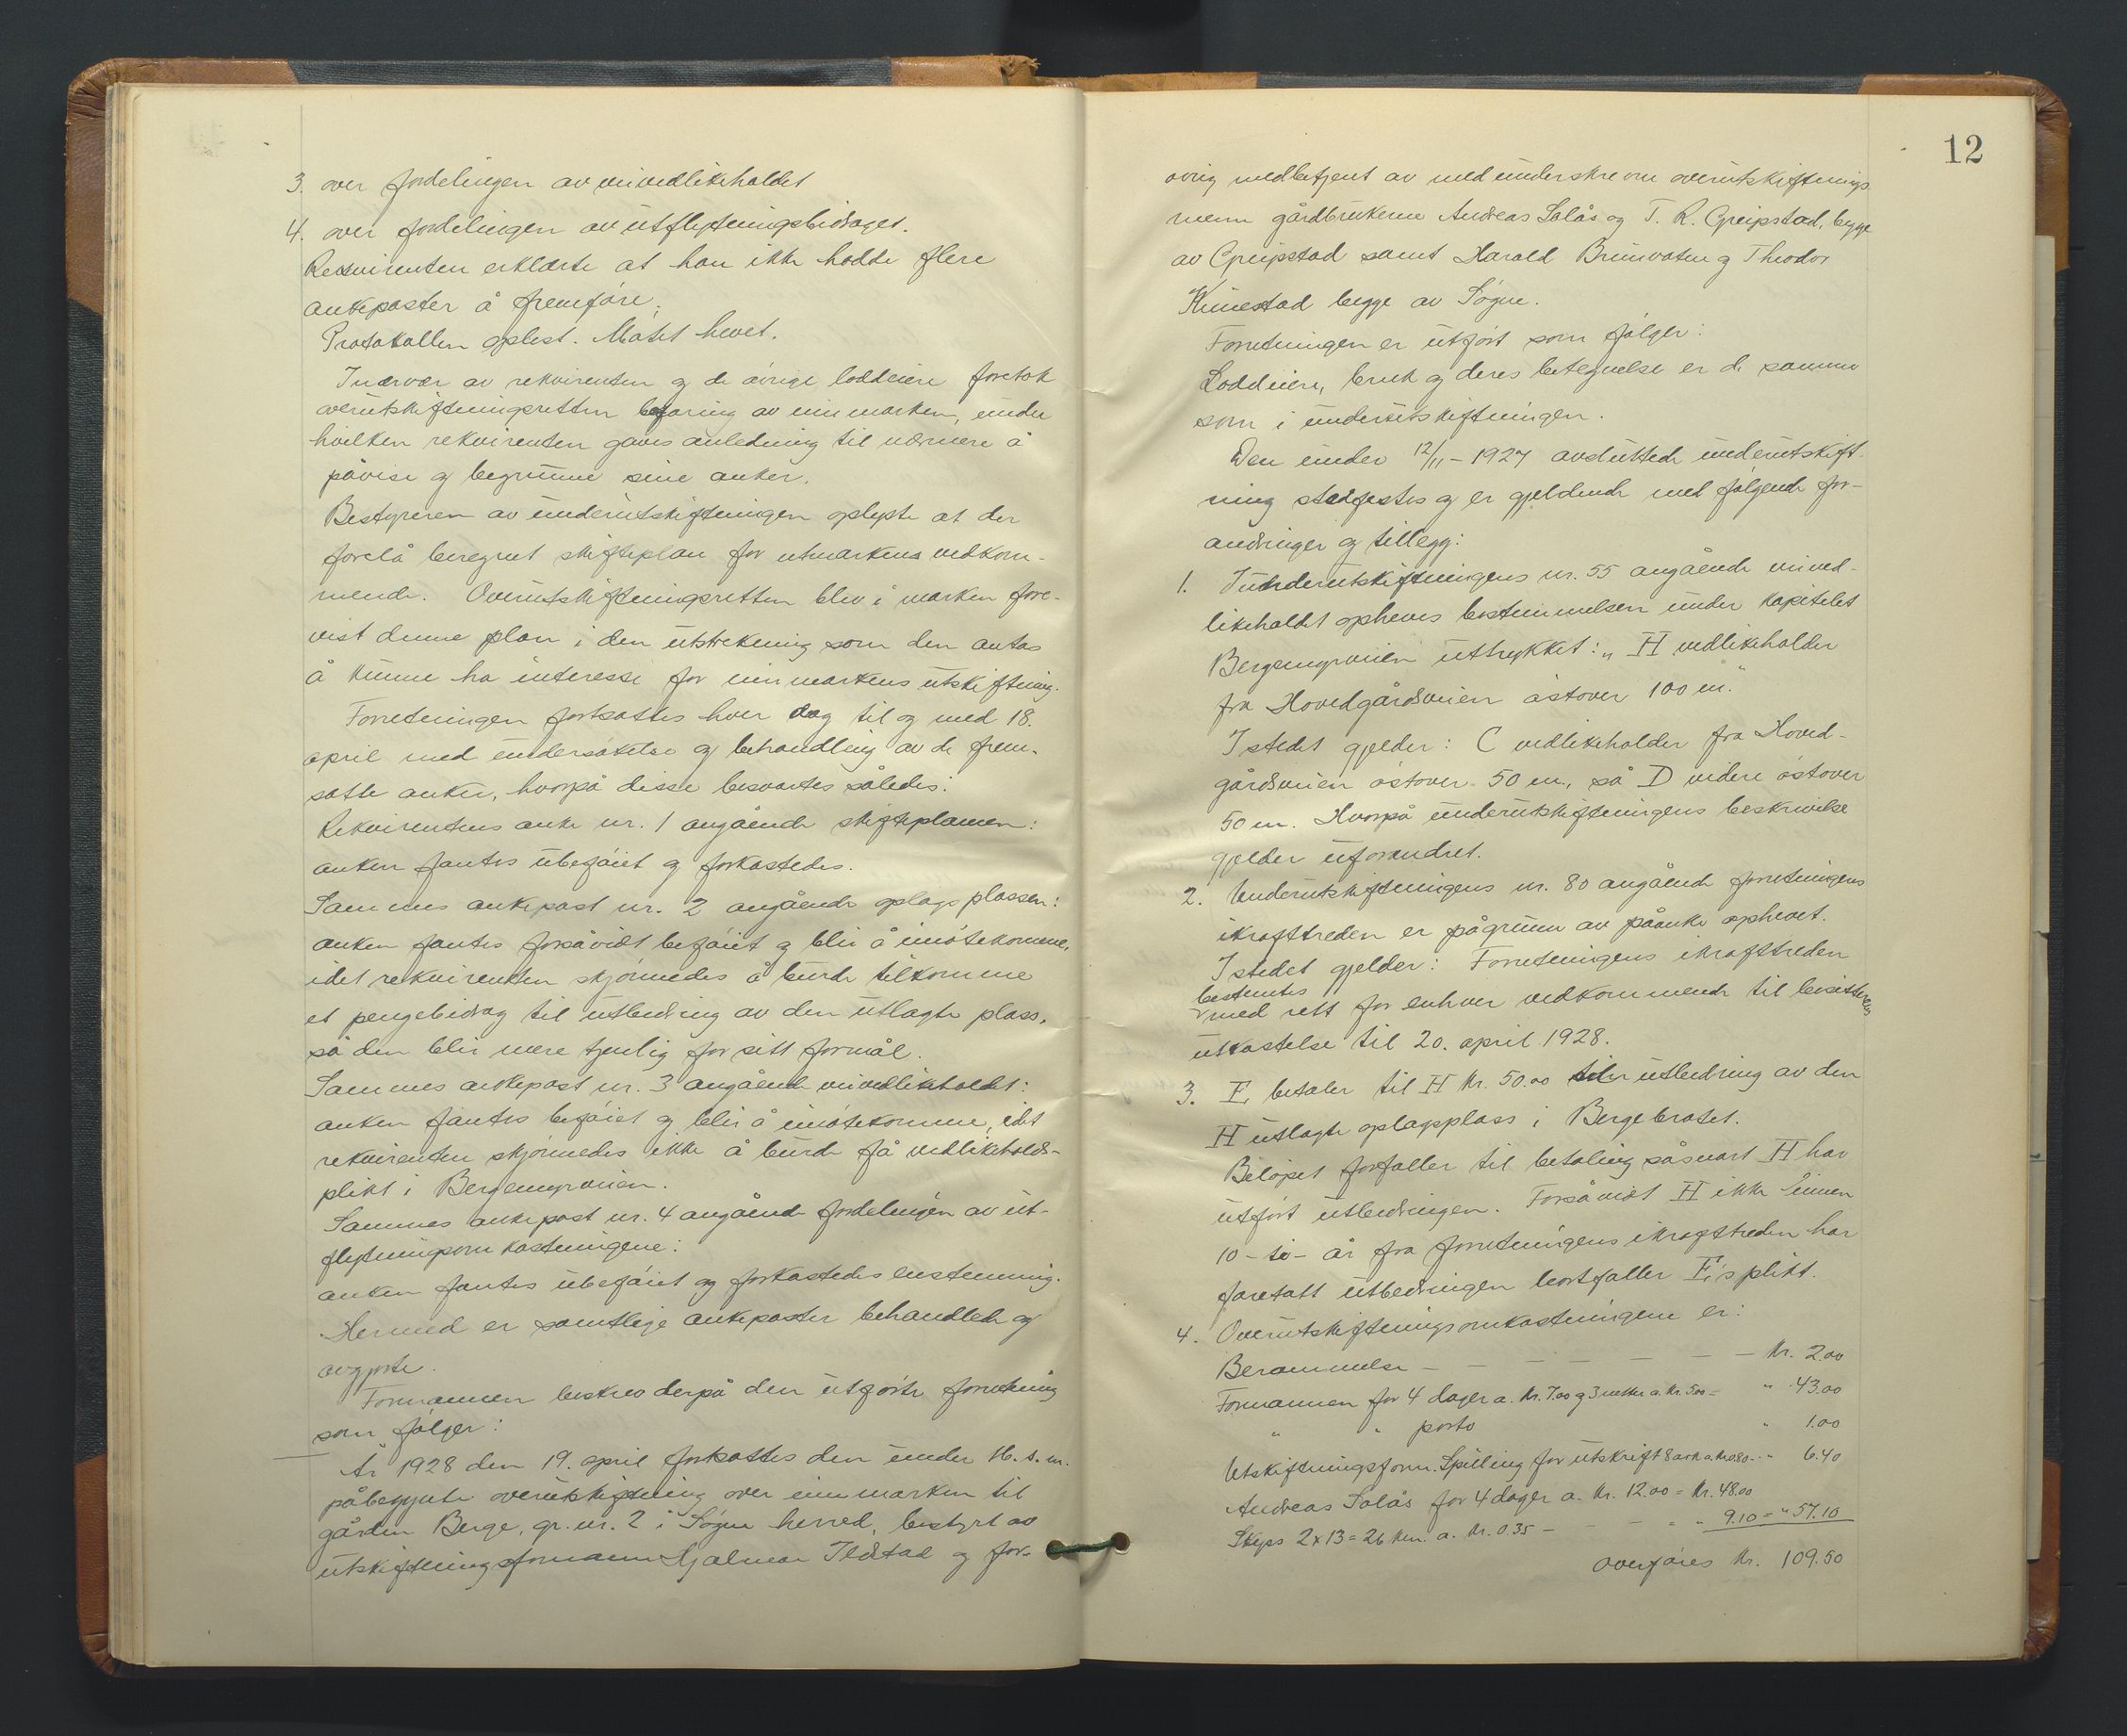 3. over fordelingen av veivedlikeholdet
4. over fordelingen av utflytningsbidraget.
Rekvirenten erklærte at han ikke hadde flere
ankeposter å fremføre.
Protokollen oplest. Møtet hevet.
I nærvær av rekvirenten og de øvrige loddeiere foretok
overutskiftningsretten befaring av innmarken, under
hvilken rekvirenten gaves anledning til nærmere å
påvise og begrunne sine anker.
Bestyreren av underutskiftningen oplyste at der
forelå beregnet skifteplan for utmarkens vedkom-
mende. Overutskiftningsretten blev i marken fore-
vist denne plan i den utstrekning som den antas
å kunne ha interesse for innmarkens utskiftning.
Forretningen fortsattes hver dag til og med 18.
april med undersøkelse og behandling av de frem-
satte anker, hvorpå disse besvartes således:
Rekvirentens anke nr. 1 angående skifteplanen:
anken fantes ubeføiet og forkastedes.
Sammes ankepost nr. 2 angående oplagsplassen:
anken fantes forsåvidt beføiet og blir å imøtekomme,
idet rekvirenten skjønnedes å burde tilkomme
et pengebidrag til utbedring av den utlagte plass,
så den blir mere tjenlig for sitt formål.
Sammes ankepost nr. 3 angående veivedlikeholdet:
anken fantes beføiet og blir å imøtekomme, idet
rekvirenten skjønnedes ikke å burde få vedlikeholds-
plikt i Bergemyrveien.
Sammes ankepost nr. 4 angående fordelingen av ut-
flytningsomkostningene:
anken fantes ubeføiet og forkastedes enstemmig.
Hermed er samtlige ankeposter behandlede og
avgjorte.
Formannen beskrev derpå den utførte forretning
som følger:
År 1928 den 19. april fortsattes den under 16. s. m.
påbegynte overutskiftning over innmarken til
gården Berge, gr. nr. 2 i Søgne herred, bestyrt av
utskiftningsformann Hjalmar Ildstad og for-
12
øvrig medbetjent av medunderskrevne overutskiftnings
menn gårdbrukerne Andreas Salås og T. R. Greipstad, begge
av Greipstad samt Harald Brunvatne og Theodor
Kinestad begge av Søgne.
Forretningen er utført som følger:
Loddeiere, bruk og deres betegnelse er de samme
som i underutskiftningen.
Den under 12/11 - 1927 avsluttede underutskift-
ning stadfestes og er gjeldende med følgende for-
andringer og tillegg:
1. I underutskiftningens nr. 55 angående veived-
likeholdet opheves bestemmelsen under kapitelet
Bergemyrveien uttrykket: „H vedlikeholder
fra Hovedgårdsveien østover 100 m."
Istedet gjelder: C vedlikeholder fra Hoved-
gårdsveien østover 50 m., så D videre østover
50 m. Hvorpå underutskiftningens beskrivelse
gjelder uforandret.
2. Underutskiftningens nr. 80 angående forretningens
ikrafttreden er pågrunn av påanke ophevet.
Istedet gjelder: Forretningens ikrafttreden
bestemtes
med rett for enhver vedkommende til besittelsens
utkastelse til 20. april 1928.
3. E betaler til H kr. 50.00 til utbedring av den
H utlagte oplagsplass i Bergebrotet.
Beløpet forfaller til betaling såsnart H har
utført utbedringen. Forsåvidt H ikke innen
10 - ti - år fra forretningens ikrafttreden har
foretatt utbedringen bortfaller E's plikt.
4. Overutskiftningsomkostningene er:
Berammelse - - - - - - - kr. 2.00
Formannen for 4 dager a. kr. 7.00 og 3 netter a. kr. 5.00 = " 43.00
" " porto " 1.00
Utskiftningsform. Spilling for utskrift 8 ark a. kr. 0.80 - " 6.40
Andreas Salås for 4 dager a. kr. 12.00 = kr. 48.00
Skyss 2 x 13 = 26 km. a. kr. 0.35 - - - = " 9.10 = " 57.10
overføres kr. 109.50